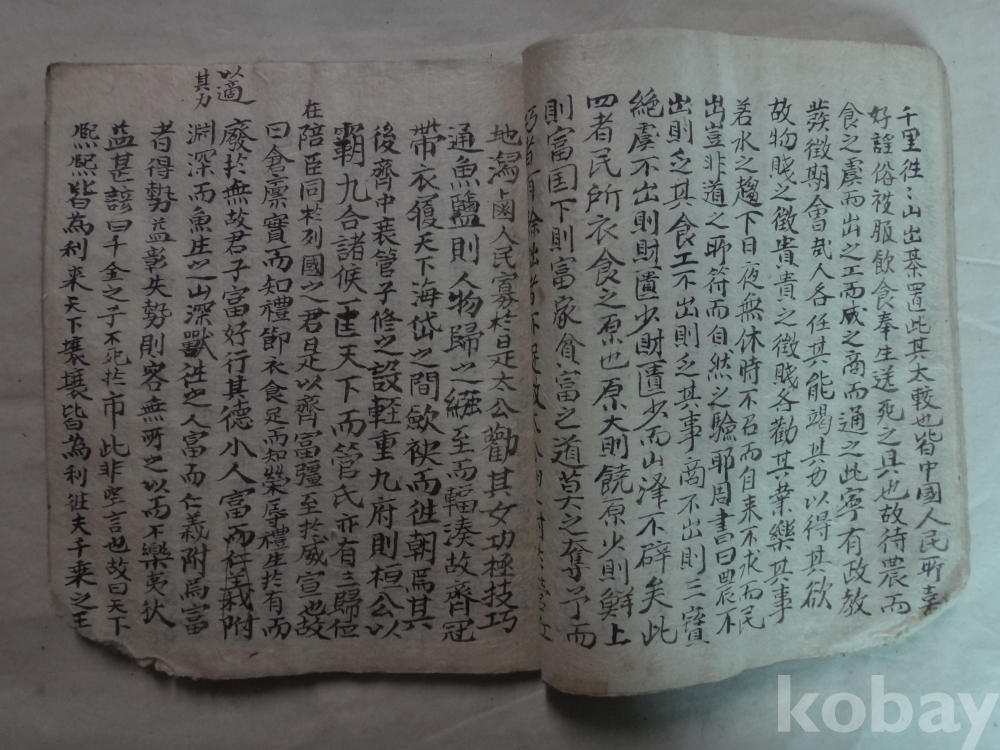 千里徃〻山出棊置此其大較也皆中國人民所喜
好謠俗被服飲食奉生送死之具也故待農而
食之虞而出之工而成之商而通之此寧有政教
發徵期會哉人各任其能竭其力以得其欲
故物賤之徵貴貴之徵賤各勸其業樂其事
若水之趨下日夜無休時不召而自来不求而民
出豈非道之所符而自然之驗耶周書曰農不
出則乏其食工不出則乏其事商不出則三寶
絶虞不出則財匱少財匱少而山澤不辟矣此
四者民所衣食之原也原大則饒原少則鮮上
則富国下則富家貧富之道莫之奪予而
巧者有餘拙者不足故
地潟鹵人民寡於是太公勸其女功極技巧
通魚鹽則人物歸之繦至而輻湊故齊冠
帶衣履天下海岱之間歛袂而徃朝焉其
後齊中衰管子修之設輕重九府則桓公以
霸九合諸候一匡天下而管氏亦有三歸位
在陪臣同於列國之君是以齊富彊至於威宣也故
曰倉廩實而知禮節衣食足而知榮辱禮生於有而
廢於無故君子富好行其德小人富而
以適其力
淵深而魚生之山深獸徃之人富而仁義附焉富
者得勢益彰失勢則客無所之以而不樂夷狄
益甚諺曰千金之子不死於市此非空言也故曰天下
熙熙皆為利来天下壤壤皆為利徃夫千乗之王
kobay